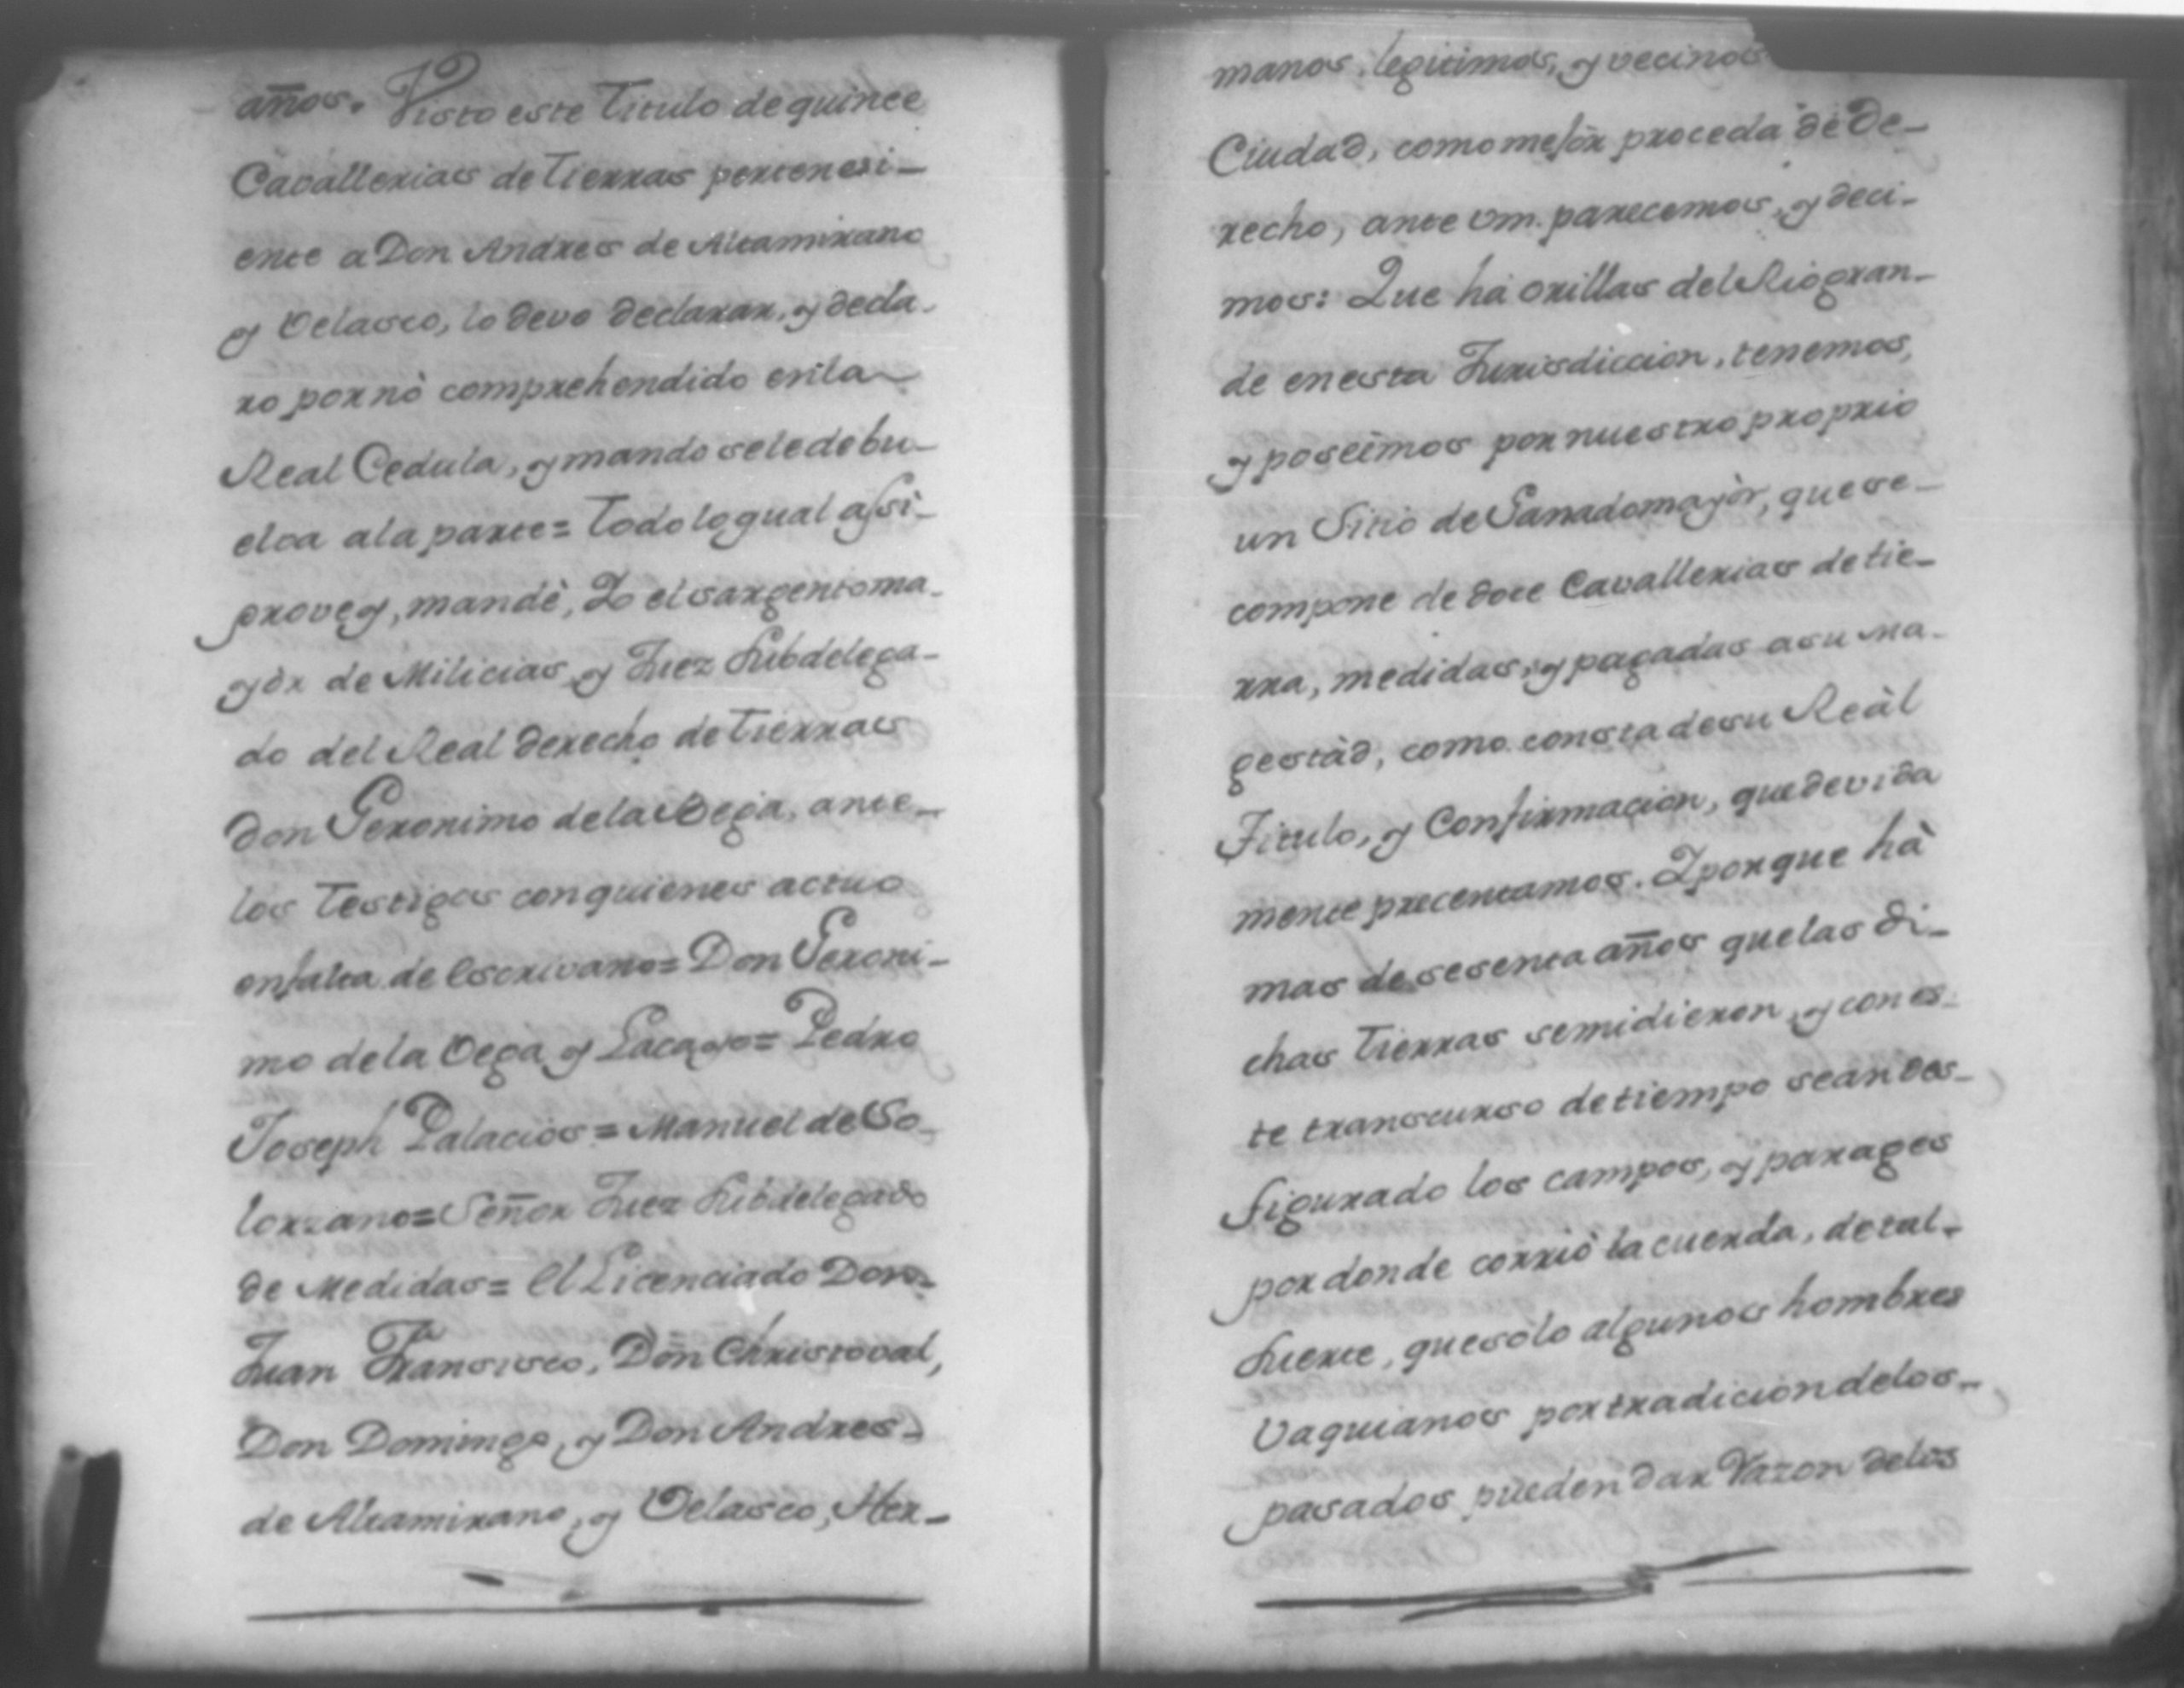 años. Visto este Titulo de quince
Cavallerias de tierras pertenesi-
ente a Don Andres de Altamirano
y Velasco, lo devo declarar, y decla-
ro por nò comprehendido en la
Real Cedula, y mando se le debu-
elva a la parte= todo lo qual assi-
provey, mandè, Yo el sargento ma-
yòr de Milicias, y Juez Subdelega-
do del Real derecho de tierras
Don Geronimo de la Vega, ante-
los testigos con quienes actuo
en falta de Escrivano= Don Geroni-
mo de la Vega y Lacayo= Pedro
Joseph Palacios= Manuel de So-
lorzano= Señor Juez Subdelegado
de Medidas= El Licenciado Don-
Juan Fransisco, Don Christoval,
Don Domingo, y Don Andres-
de Altamirano, y Velasco, Her-
manos legitimos, y vecinos
Ciudad, como mejòr proceda de De-
recho, ante vm. parecemos, y deci-
mos: Que hà orillas del Rio gran-
de en esta Jurisdiccion, tenemos,
y poseèmos por nuestro proprio
un Sitio de Ganado mayòr, que se-
compone de doce Cavallerias de tie-
rra, medidas, y pagadas a su Ma-
gestàd, como consta de su Reàl
Titulo, y Confirmacion, que devida
mente precentamos. Y por que hà
mas de sesenta años que las di-
chas tierras se midieron, y con es-
te transcurso de tiempo se an des-
figurado los campos, y parages
por donde corriò la cuerda, de tal-
suerte, que solo algunos hombres
Vaquianos por tradicion de los-
pasados pueden dar Razon de los